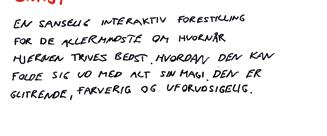 EN SANSELIG INTERAKTIV FORESTILLING
FOR DE ALLERMINDSTE OM HVORNÅR
HJERNEN TRIVES BEDST. HVORDAN DEN KAN
FOLDE SIG UD MED ALT SIN MAGI. DEN ER
GLITRENDE, FARVERIG OG UFORUDSIGELIG.